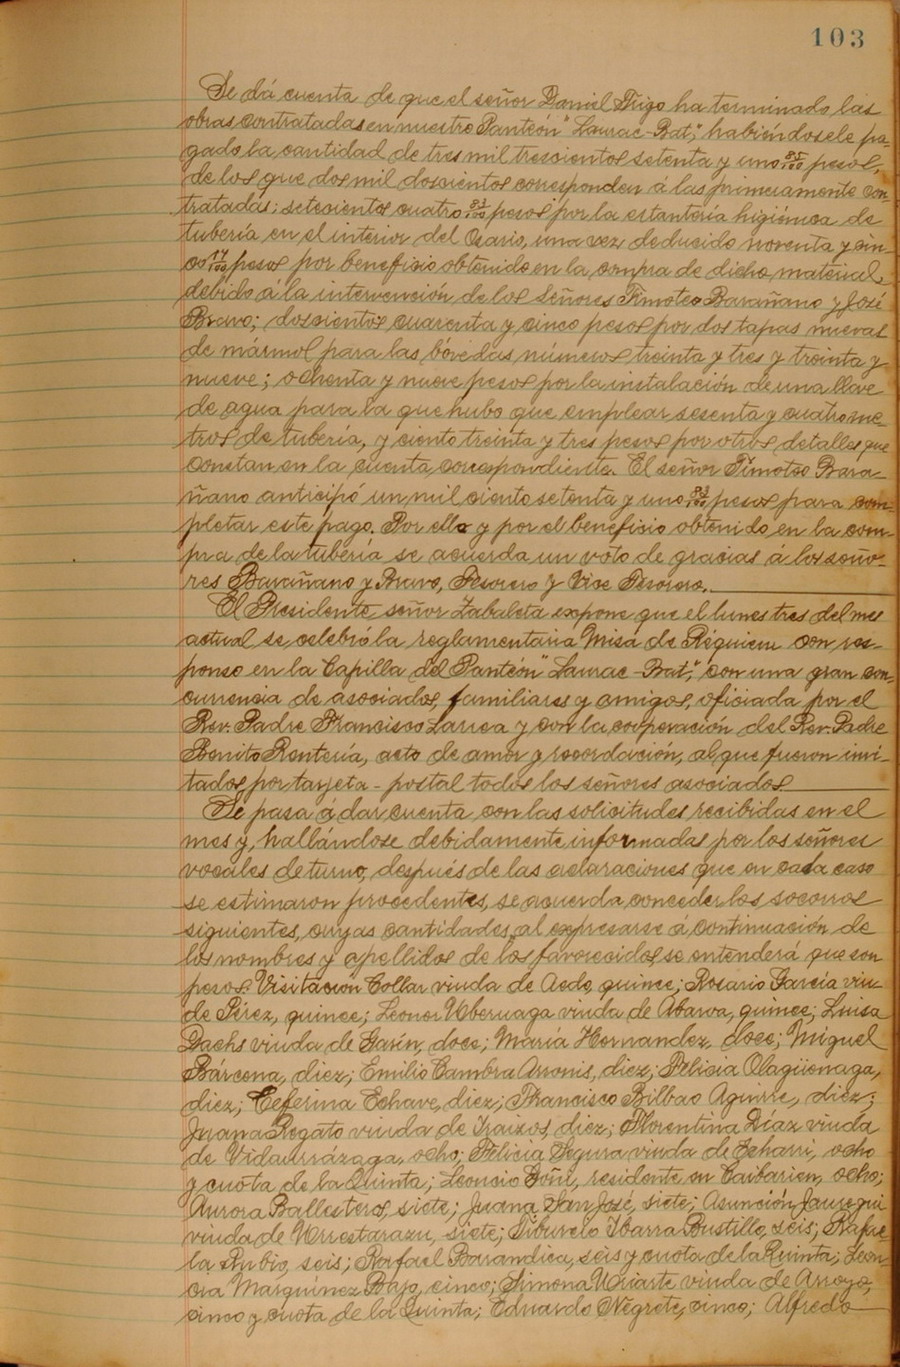 103
Se dá cuenta de que el señor Daniel Trigo ha terminado las
obras contratadas en nuestro Panteón "Laurac-Bat", habiéndosele pa-
gado la cantidad de tres mil trescientos setenta y uno 85/100 pesos,
de los que dos mil doscientos corresponden á las primeramente con-
tratadas; setecientos cuatro 83/100 pesos por la estantería higiénica de
tubería en el interior del Osario, una vez deducido noventa y cin-
co 17/100 pesos por beneficio obtenido en la compra de dicho material,
debido á la intervención de los Señores Timoteo Barañano y José
Bravo; doscientos cuarenta y cinco pesos por dos tapas nuevas
de mármol para las bóvedas números treinta y tres y treinta y
nueve; ochenta y nueve pesos por la instalación de una llave
de agua para la que hubo que emplear sesenta y cuatro me-
tros de tubería, y ciento treinta y tres pesos por otros detalles que
constan en la cuenta correspondiente. El señor Timoteo Bara-
ñano anticipó un mil ciento setenta y uno 83/100 pesos para com-
pletar este pago. Por ello y por el beneficio obtenido en la com-
pra de la tubería se acuerda un voto de gracias á los seño-
res Barañano y Bravo, Tesorero y Vice Tesorero.
El Presidente señor Zabaleta expone que el lunes tres del mes
actual se celebró la reglamentaria Misa de Réquiem con res-
ponso en la Capilla del Panteón "Laurac-Bat", con una gran con-
currencia de asociados, familiares y amigos, oficiada por el
Rev. Padre Francisco Larrea y con la cooperación del Rev. Padre
Benito Rentería, acto de amor y recordación, al que fueron invi-
tados por tarjeta-postal todos los señores asociados
Se pasa á dar cuenta con las solicitudes recibidas en el
mes y, hallándose debidamente informadas por los señores
vocales de turno, después de las aclaraciones que en cada caso
se estimaron procedentes, se acuerda conceder los socorros
siguientes, cuyas cantidades al expresarse á continuación de
los nombres y apellidos de los favorecidos se entenderá que son
pesos: Visitacion Collar viuda de Aedo, quince; Rosario García viu-
de Pérez, quince; Leonor Uberuaga viuda de Abarca, quince; Luisa
Dachs viuda de Garín, doce; María Hernandez, doce; Miguel
Bárcena, diez; Emilio Cambra Arronis, diez; Felicia Olagüenaga,
diez; Ceferina Echave, diez; Francisco Bilbao Aguirre, diez;
Juana Regato viuda de Iraizos, diez; Florentina Díaz viuda
de Vidaurrázaga, ocho; Felicia Segura viuda de Echarri, ocho
y cuota de la Quinta; Leoncio Goñi, residente en Caibarien, ocho;
Aurora Ballesteros, siete; Juana San José, siete; Asunción Jauregui
viuda de Urrestarazu, siete; Tiburcio Ibarra Bustillo, seis; Rafae-
la Rubio, seis; Rafael Barandica, seis y cuota de la Quinta; Leon-
cia Marquínez Bajo, cinco; Simona Uriarte viuda de Arroyo,
cinco y cuota de la Quinta; Eduardo Negrete, cinco; Alfredo